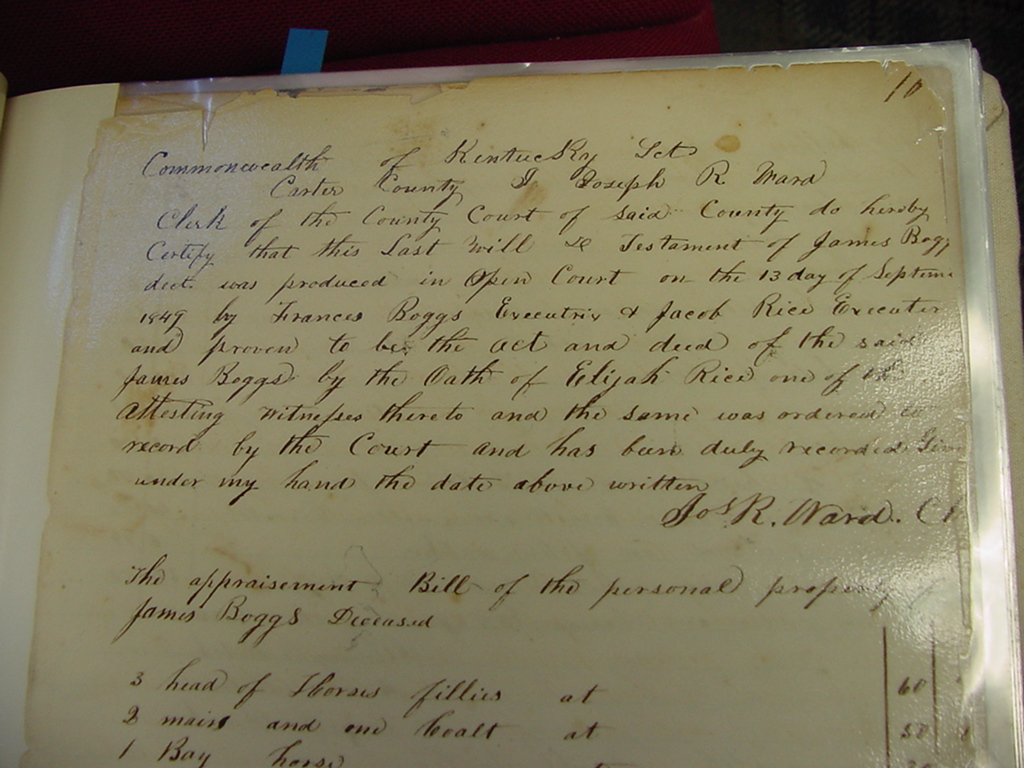 10
Commonwealth of Kentucky Sct
Carter County I Joseph R Ward
Clerk of the County Court of said County do hereby
Certify that this Last Will & Testament of James Bogg
dect was produced in Open Court on the 13 day of Septem
1849 by Frances Boggs Executrix & Jacob Rice Executer
and proven to be the act and deed of the said
James Boggs by the Oath of Elijah Rice one of the
Attesting witnesses thereto and the same was ordered
record by the Court and has been duly recorded Given
under my hand the date above written
Jos R. Ward. Cl
The appraisement Bill of the personal property
James Boggs Deceased
3 head of Horses fillies at 60
2 mairs and one Coalt at 50
1 Bay horse